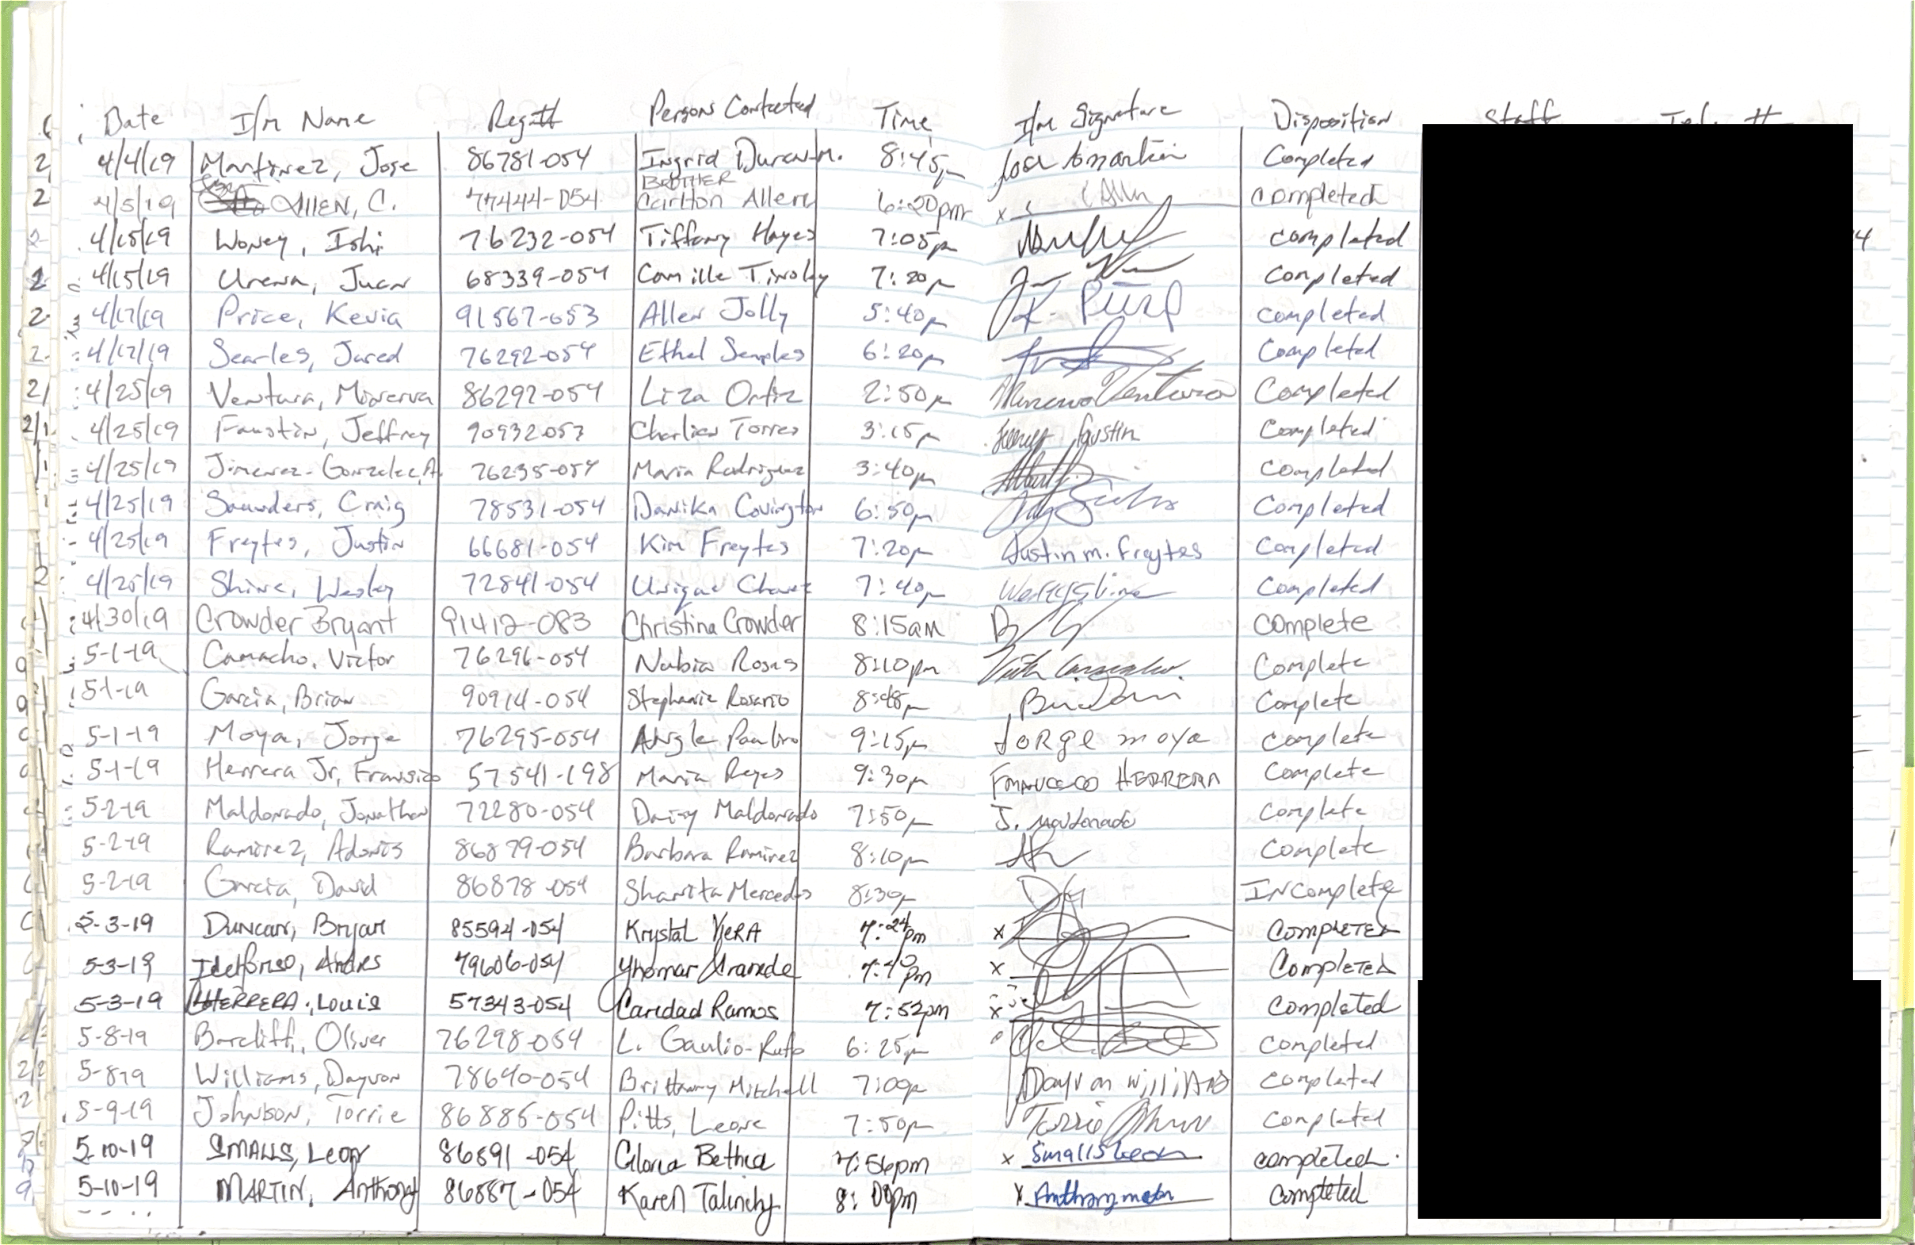 Date I/m Name Reg# Persons Contacted Time I/m Signature Disposition Staff
4/4/19 Martinez, Jose 86781-054 Ingrid Duran M. 8:45p Completed
4/5/19 Allen, C. 77444-054 BROTHER Carlton Allen 6:20pm x CAllen completed
4/15/19 Woney, Ishi 76232-054 Tiffany Hayes 7:05p completed
4/15/19 Urena, Juan 68339-054 Camille 7:20p Completed
4/17/19 Price, Kevin 91567-053 Allen Jolly 5:40p K. completed
4/17/19 Searles, Jared 76292-054 Ethel Semples 6:20p Completed
4/25/19 Ventura, Minerva 86292-054 Liza Ortiz 2:50p Minerva Ventura Completed
4/25/19 Faustin, Jeffrey 90932053 Charlies Torres 3:15p Faustin Completed
4/25/19 Jimenez-Gonzalez, A. 76235-054 Maria Rodriguez 3:40p Completed
4/25/19 Saunders, Craig 78531-054 Danika Covington 6:50p Completed
4/25/19 Freytes, Justin 66681-054 Kim Freytes 7:20p Justin m. Freytes Completed
4/25/19 Shine, Wesley 72841-054 Unique 7:40p Wesley Shine Completed
4/30/19 Crowder Bryant 91412-083 Christina Crowder 8:15am complete
5-1-19 Camacho, Victor 76296-054 Nubia Rosas 8:10pm Complete
5-1-19 Garcia, Brian 90914-054 Stephanie Rosario 8:48p Complete
5-1-19 Moya, Jorge 76295-054 Paulino 9:15p Jorge moya Complete
5-1-19 Herrera Jr, Fransisco 57541-198 Maria Reyes 9:30p Francisco HERRERA Complete
5-2-19 Maldonado, Jonathan 72280-054 Daisy Maldonado 7:50p J. Maldonado Complete
5-2-19 Ramirez, Adonis 86879-054 Barbara Ramirez 8:10p Complete
5-2-19 Garcia, David 86878-054 Sharita Mercedes 8:30p DG Incomplete
5-3-19 Duncan, Bryan 85594-054 Krystal Vera 7:24pm x Completed
5-3-19 Idelfonso, Andres 79606-054 Yhomar 7:40pm x Completed
5-3-19 Herrera, Louis 57343-054 Caridad Ramos 7:52pm x completed
5-8-19 Barcliff, Oliver 76298-054 L. Gaulio-Rufo 6:25p completed
5-8-19 Williams, Dayvon 78640-054 Brittany Mitchell 7:00p Dayvon Williams completed
5-9-19 Johnson, Torrie 86885-054 Pitts, Leone 7:50p Torrie Johnson completed
5-10-19 Smalls, Leon 86891-054 Gloria Bethea 7:56pm x Smalls Leon completed.
5-10-19 Martin, Anthony 86887-054 Karen 8:00pm x Anthony Completed